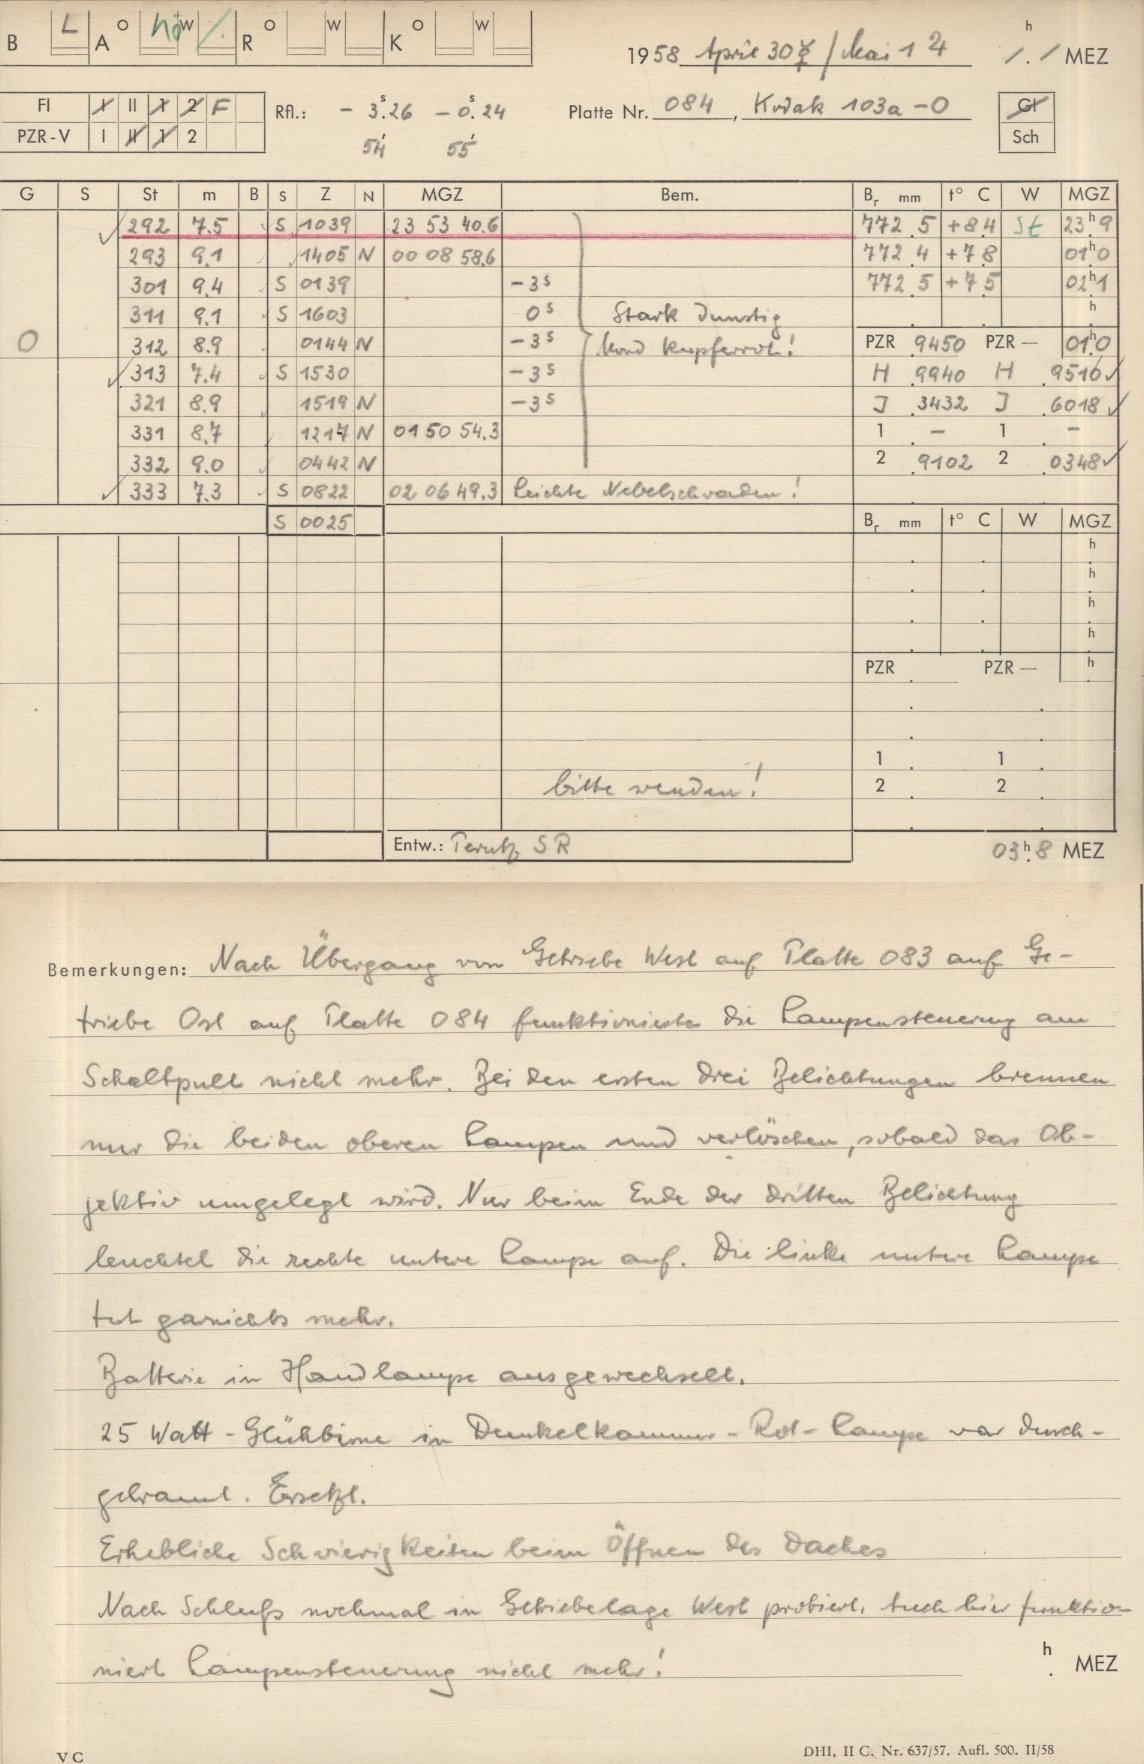 B L A O W R O W K O W
1958 April 30 / Mai 1 h MEZ
Fl I II 1 2 F Rfl.: - 3.ˢ26 - 0.ˢ24 Platte Nr. 084, Kodak 103a-O Gl
PZR-V I II 1 2 54 55 Sch
G S St m B S Z N MGZ Bem. Bᵣ mm t° C W MGZ
292 7.5 S 1039 23 53 40.6 772.5 +8.4 St 23ʰ9
293 9.1 1405 N 00 08 58.6 772.4 +7.8 01ʰ0
301 9.4 S 0139 -3ˢ 772.5 +7.5 02ʰ1
311 9.1 S 1603 0ˢ Stark dunstig h
O 312 8.9 0144 N -3ˢ Mond kupferrot! PZR 9450 PZR — 01ʰ0
313 7.4 S 1530 -3ˢ H 9940 H 9516
321 8.9 1519 N -3ˢ J 3432 J 6018
331 8.7 1217 N 01 50 54.3 1 - 1 -
332 9.0 0442 N 2 9102 2 0348
333 7.3 S 0822 02 06 49.3 leichte Nebelschwaden!
S 0025 Bᵣ mm t° C W MGZ
h
h
h
h
PZR PZR — h
1 1
bitte wenden! 2 2
Entw.: Perutz SR 03ʰ.8 MEZ
Bemerkungen: Nach Übergang von Getriebe West auf Platte 083 auf Ge-
triebe Ost auf Platte 084 funktionierte die Lampensteuerung am
Schaltpult nicht mehr. Bei den ersten drei Belichtungen brennen
nur die beiden oberen Lampen und verlöschen, sobald das Ob-
jektiv umgelegt wird. Nur beim Ende der dritten Belichtung
leuchtet die rechte untere Lampe auf. Die linke untere Lampe
tut garnichts mehr.
Batterie in Handlampe ausgewechselt.
25 Watt-Glühbirne in Dunkelkammer-Rot-Lampe war durch-
gebrannt. Ersetzt.
Erhebliche Schwierigkeiten beim Öffnen des Daches
Nach Schluß nochmal in Getriebelage West probiert. Auch hier funktio-
niert Lampensteuerung nicht mehr! h MEZ
VC DHI, II C. Nr. 637/57. Aufl. 500. II/58